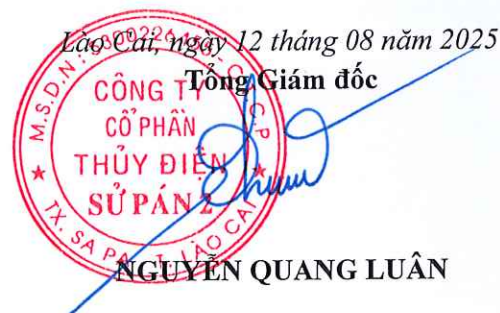 Lào Cai, ngày 12 tháng 08 năm 2025
Tổng Giám đốc
CÔNG TY
CỔ PHẦN
THỦY ĐIỆN
SỬ PÁN 2
M.S.D.N:
C.P
TX. SA PA - T. LÀO CAI
NGUYỄN QUANG LUÂN